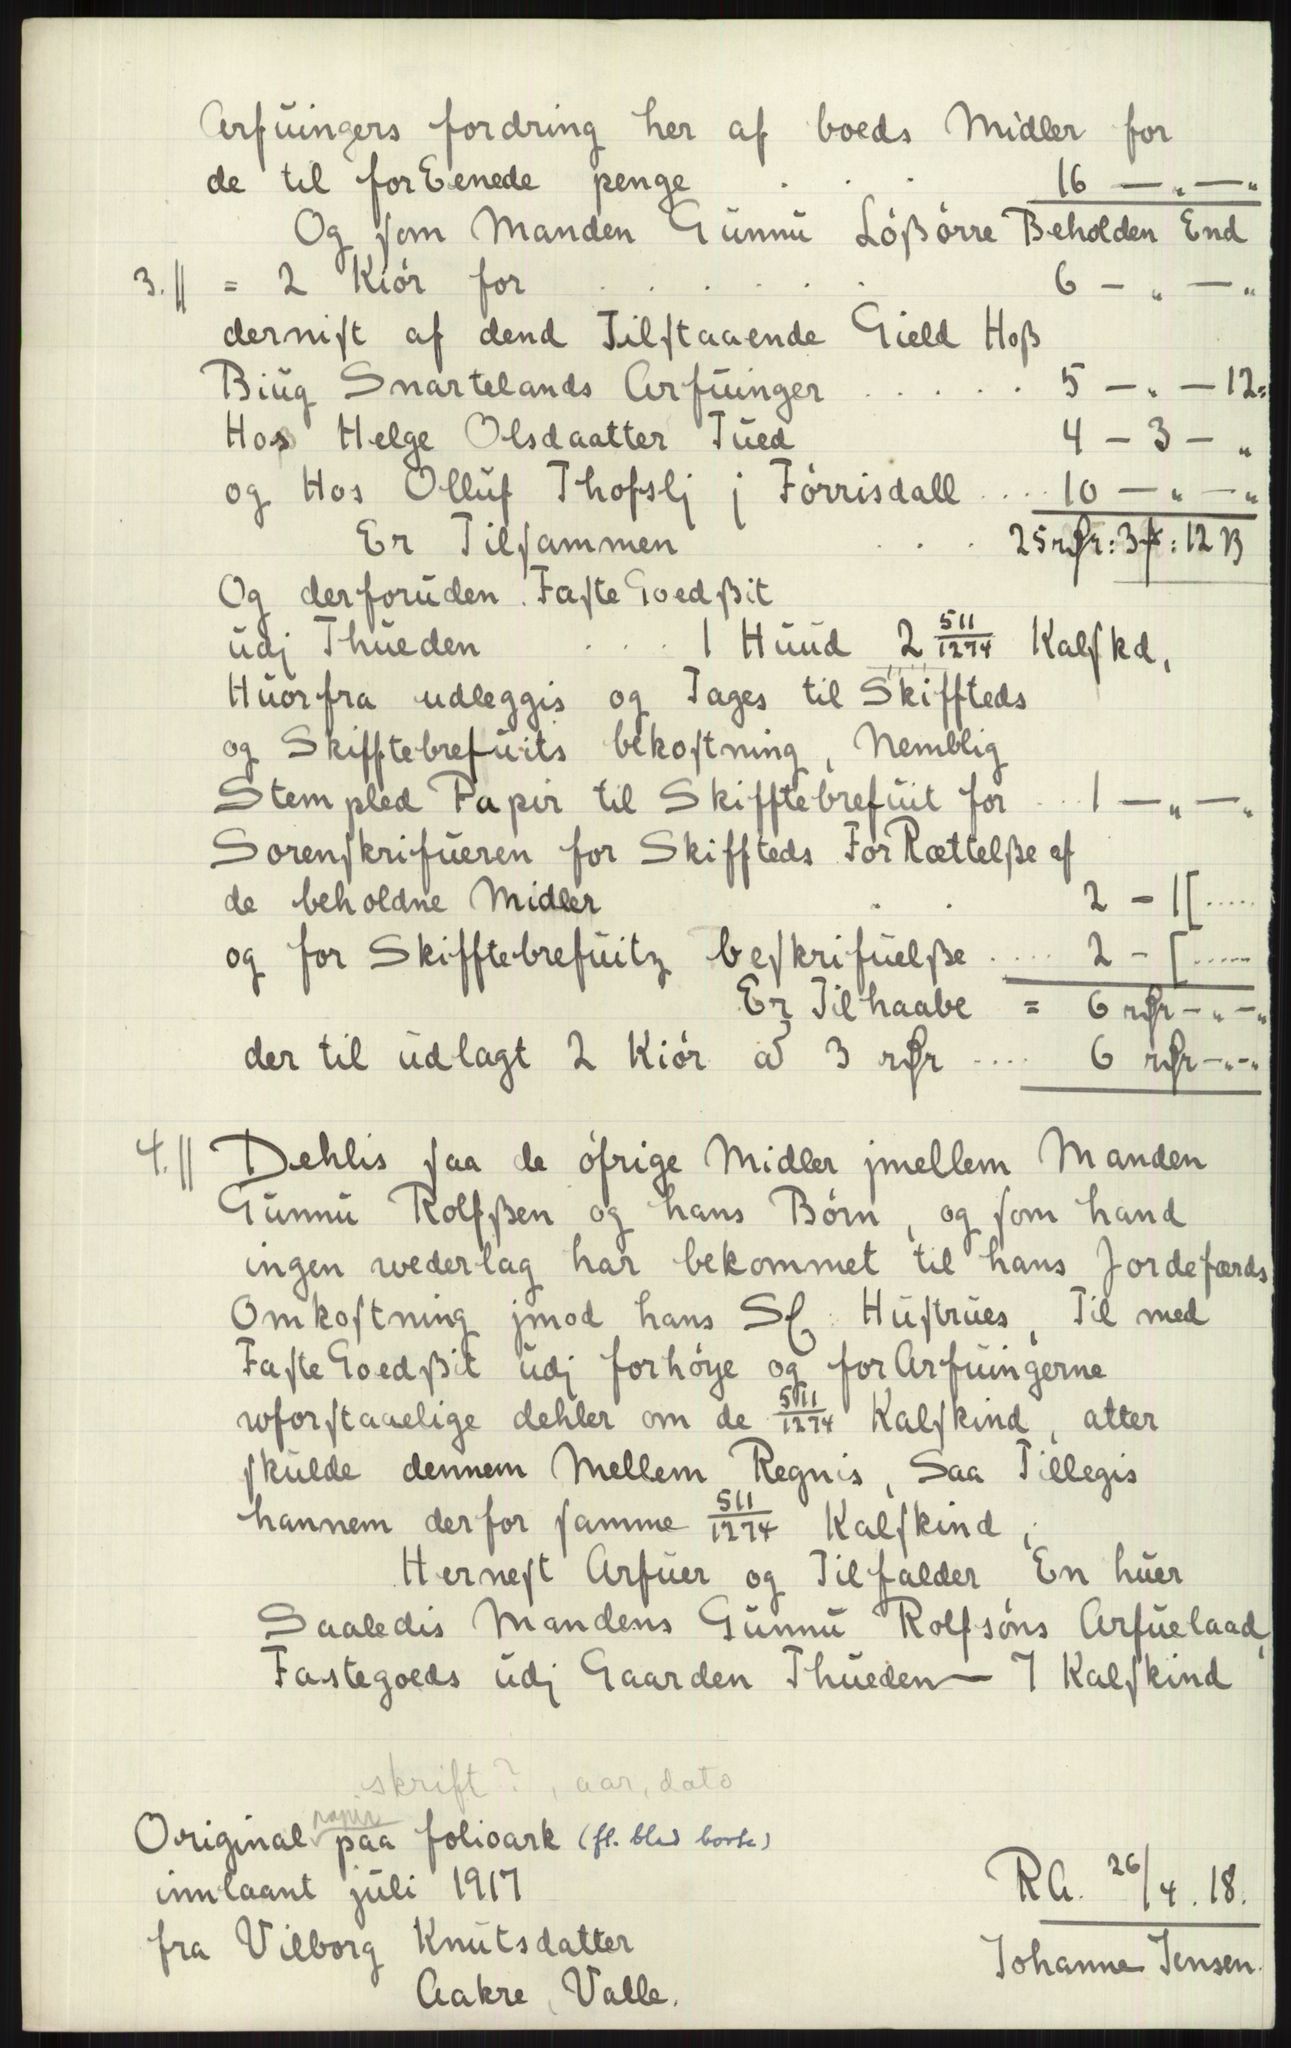 Arfuingers fordring her af boeds Midler for
de til forEenede penge . . . 16 — „ — „
Og som Manden Gunnu Lößörre Beholden End
3. || = 2 Kiör for . . . . . . 6 — „ — „
dernist af dend Tilstaaende Gield Hoß
Biug Snartelands Arfuinger . . . . . 5 — „ — 12 =
Hos Helge Olsdaatter Tued 4 — 3 — „
og Hos Olluf Thofslj j Förrisdall .... 10 — „ — „
Er Tilsammen . . . 25 rdr : 3 # : 12 ß
Og derforuden FasteGoedßit
udj Thueden . . . 1 Huud 2 511/1274 Kalfskd,
Huorfra udleggis og Tages til Skiffteds
og Skifftebrefuits bekostning, Nemblig
Stempled Papir til Skifftebrefuit for .. 1 — „ — „
Sorenskrifueren for Skiffteds ForRættelße af
de beholdne Midler . . 2 — 1[.....
og for Skifftebrefuitz beskrifuelße .... 2 — [.....
Er Tilhaabe = 6 rdr — „ — „
der til udlagt 2 Kiör a 3 rdr .... 6 rdr — „ — „
4. || Dehlis saa de öfrige Midler jmellem Manden
Gunnu Rolfßen og hans Börn, og som hand
ingen wederlag har bekommet til hans Jordefærds
Omkostning jmod hans Sl. Hustrues, Til med
FasteGoedßit udj forhöye og forArfuingerne
wforstaaelige dehler om de 511/1274 Kalfskind, atter
skulde dennem Mellem Regnis, Saa Tillegis
hannem derfor samme 511/1274 Kalfskind,
Hernest Arfuer og Tilfalder En huer
Saaledis Mandens Gunnu Rolfsöns Arfuelaad,
Fastegoeds udj Gaarden Thueden — 7 Kalfskind
skrift ?, aar, dato
papir
Original paa folioark (fl. blad borte)
innlaant juli 1917
fra Vilborg Knutsdatter
Aakre, Valle.
RA. 26/4. 18.
Johanne Jensen.